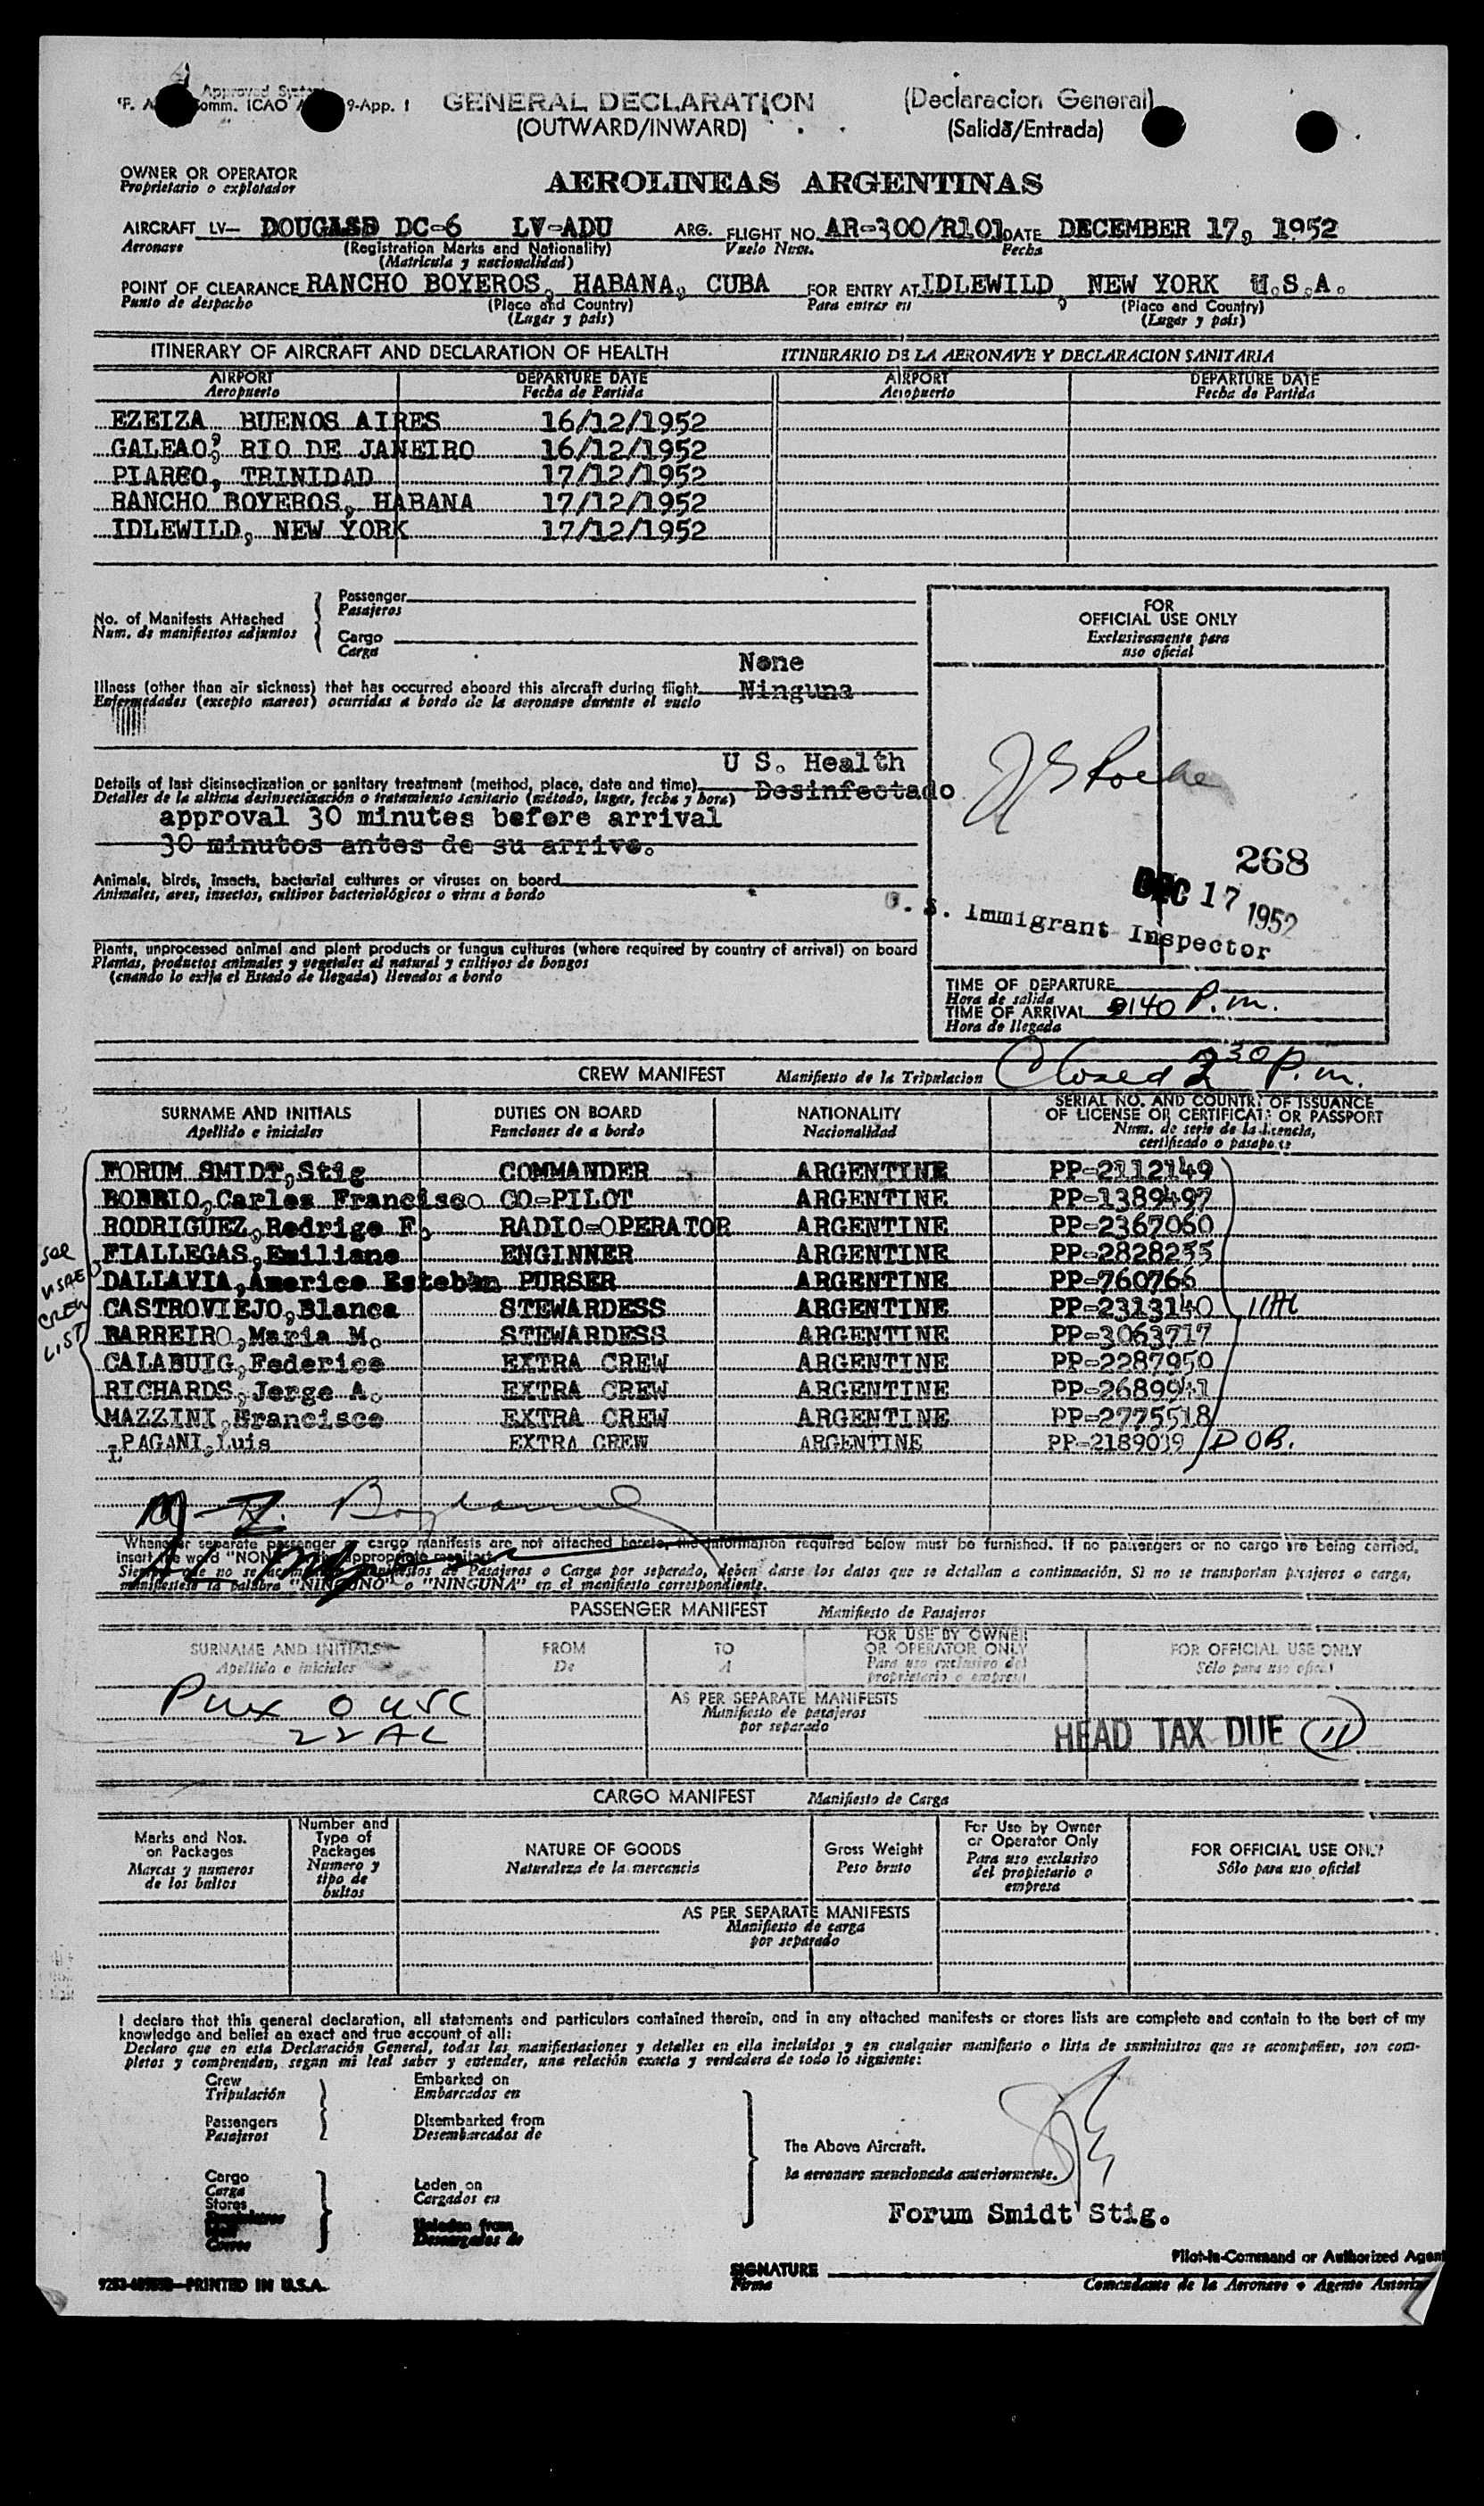 Approved System
Comm. ICAO 9-App. 1
GENERAL DECLARATION (Declaracion General)
(OUTWARD/INWARD) (Salida/Entrada)
OWNER OR OPERATOR
Proprietario o explotador
AEROLINEAS ARGENTINAS
AIRCRAFT LV— DC-6 LV-ADU ARG. FLIGHT NO. AR-300/R101 DATE DECEMBER 17, 1952
Aeronave (Registration Marks and Nationality) Vuelo Num. Fecha
(Matricula y nacionalidad)
POINT OF CLEARANCE RANCHO BOYEROS, HABANA, CUBA FOR ENTRY AT IDLEWILD, NEW YORK U.S.A.
Punto de despacho (Place and Country) Para entrar en (Place and Country)
(Lugar y pais) (Lugar y pais)
ITINERARY OF AIRCRAFT AND DECLARATION OF HEALTH ITINERARIO DE LA AERONAVE Y DECLARACION SANITARIA
AIRPORT DEPARTURE DATE AIRPORT DEPARTURE DATE
Aeropuerto Fecha de Partida Aeropuerto Fecha de Partida
EZEIZA BUENOS AIRES 16/12/1952
GALEAO, RIO DE JANEIRO 16/12/1952
PIARCO, TRINIDAD 17/12/1952
RANCHO BOYEROS, HABANA 17/12/1952
IDLEWILD, NEW YORK 17/12/1952
No. of Manifests Attached
Num. de manifiestos adjuntos
Passenger
Pasajeros
Cargo
Carga
FOR
OFFICIAL USE ONLY
Exclusivamente para
uso oficial
None
Illness (other than air sickness) that has occurred aboard this aircraft during flight Ninguna
Enfermedades (excepto mareos) ocurridas a bordo de la aeronave durante el vuelo
U S. Health
Details of last disinsectization or sanitary treatment (method, place, date and time) Desinfectado
Detalles de la ultima desinsectización o tratamiento sanitario (método, lugar, fecha y hora)
approval 30 minutes before arrival
30 minutos antes de su arrivo.
Animals, birds, insects, bacterial cultures or viruses on board
Animales, aves, insectos, cultivos bacteriológicos o virus a bordo
268
DEC 17 1952
U. S. Immigrant Inspector
Plants, unprocessed animal and plant products or fungus cultures (where required by country of arrival) on board
Plantas, productos animales y vegetales al natural y cultivos de hongos
(cuando lo exija el Estado de llegada) llevados a bordo
TIME OF DEPARTURE
Hora de salida
TIME OF ARRIVAL 140 P.m.
Hora de llegada
Closed 2 30 P.m.
CREW MANIFEST Manifiesto de la Tripulacion
SURNAME AND INITIALS DUTIES ON BOARD NATIONALITY SERIAL NO. AND COUNTRY OF ISSUANCE
OF LICENSE OR CERTIFICATE OR PASSPORT
Apellido e iniciales Funciones de a bordo Nacionalidad Num. de serie de la licencia,
certificado o pasaporte
FORUM SMIDT, Stig COMMANDER ARGENTINE PP-2112149
BOBBIO, Carlos Francisco CO-PILOT ARGENTINE PP-1389497
RODRIGUEZ, Rodrigo F. RADIO-OPERATOR ARGENTINE PP-2367060
FIALLEGAS, Emiliano ENGINNER ARGENTINE PP-2828255
DALLAVIA, Americo Esteban PURSER ARGENTINE PP-760766
CASTROVIEJO, Blanca STEWARDESS ARGENTINE PP-2313140
BARREIRO, Maria M. STEWARDESS ARGENTINE PP-3063717
CALABUIG, Federico EXTRA CREW ARGENTINE PP-2287950
RICHARDS, Jorge A. EXTRA CREW ARGENTINE PP-2689941
MAZZINI, Francisco EXTRA CREW ARGENTINE PP-2775518
PAGANI, Luis EXTRA CREW ARGENTINE PP-2189039 DOB.
CREW
LIST
Whenever separate passenger or cargo manifests are not attached hereto, the information required below must be furnished. If no passengers or no cargo are being carried,
insert the word "NONE" appropriate manifest.
Siempre que no se Manifiestos de Pasajeros o Carga por separado, deben darse los datos que se detallan a continuación. Si no se transportan pasajeros o carga,
manifiestese la palabra "NINGUNO" o "NINGUNA" en el manifiesto correspondiente.
PASSENGER MANIFEST Manifiesto de Pasajeros
SURNAME AND INITIALS FROM TO FOR USE BY OWNER
OR OPERATOR ONLY FOR OFFICIAL USE ONLY
Apellido e iniciales De A Para uso exclusivo del
proprietario o empresa Sólo para uso oficial
0 USC
22 AL
AS PER SEPARATE MANIFESTS
Manifiesto de pasajeros
por separado
HEAD TAX DUE 11
CARGO MANIFEST Manifiesto de Carga
Marks and Nos.
on Packages
Marcas y numeros
de los bultos
Number and
Type of
Packages
Numero y
tipo de
bultos
NATURE OF GOODS
Naturaleza de la mercancia
Gross Weight
Peso bruto
For Use by Owner
or Operator Only
Para uso exclusivo
del propietario o
empresa
FOR OFFICIAL USE ONLY
Sólo para uso oficial
AS PER SEPARATE MANIFESTS
Manifiesto de carga
por separado
I declare that this general declaration, all statements and particulars contained therein, and in any attached manifests or stores lists are complete and contain to the best of my
knowledge and belief an exact and true account of all:
Declaro que en esta Declaración General, todas las manifestaciones y detalles en ella incluidos y en cualquier manifiesto o lista de suministros que se acompañen, son com-
pletos y comprenden, segun mi leal saber y entender, una relación exacta y verdadera de todo lo siguiente:
Crew
Tripulación
Embarked on
Embarcados en
Passengers
Pasajeros
Disembarked from
Desembarcados de
Cargo
Carga
Stores
Laden on
Cargados en
Correo
Unladen from
Descargados de
The Above Aircraft.
la aeronave mencionada anteriormente.
Forum Smidt Stig.
Pilot-in-Command or Authorized Agent
SIGNATURE
Firma
Comandante de la Aeronave o Agente
PRINTED IN U.S.A.